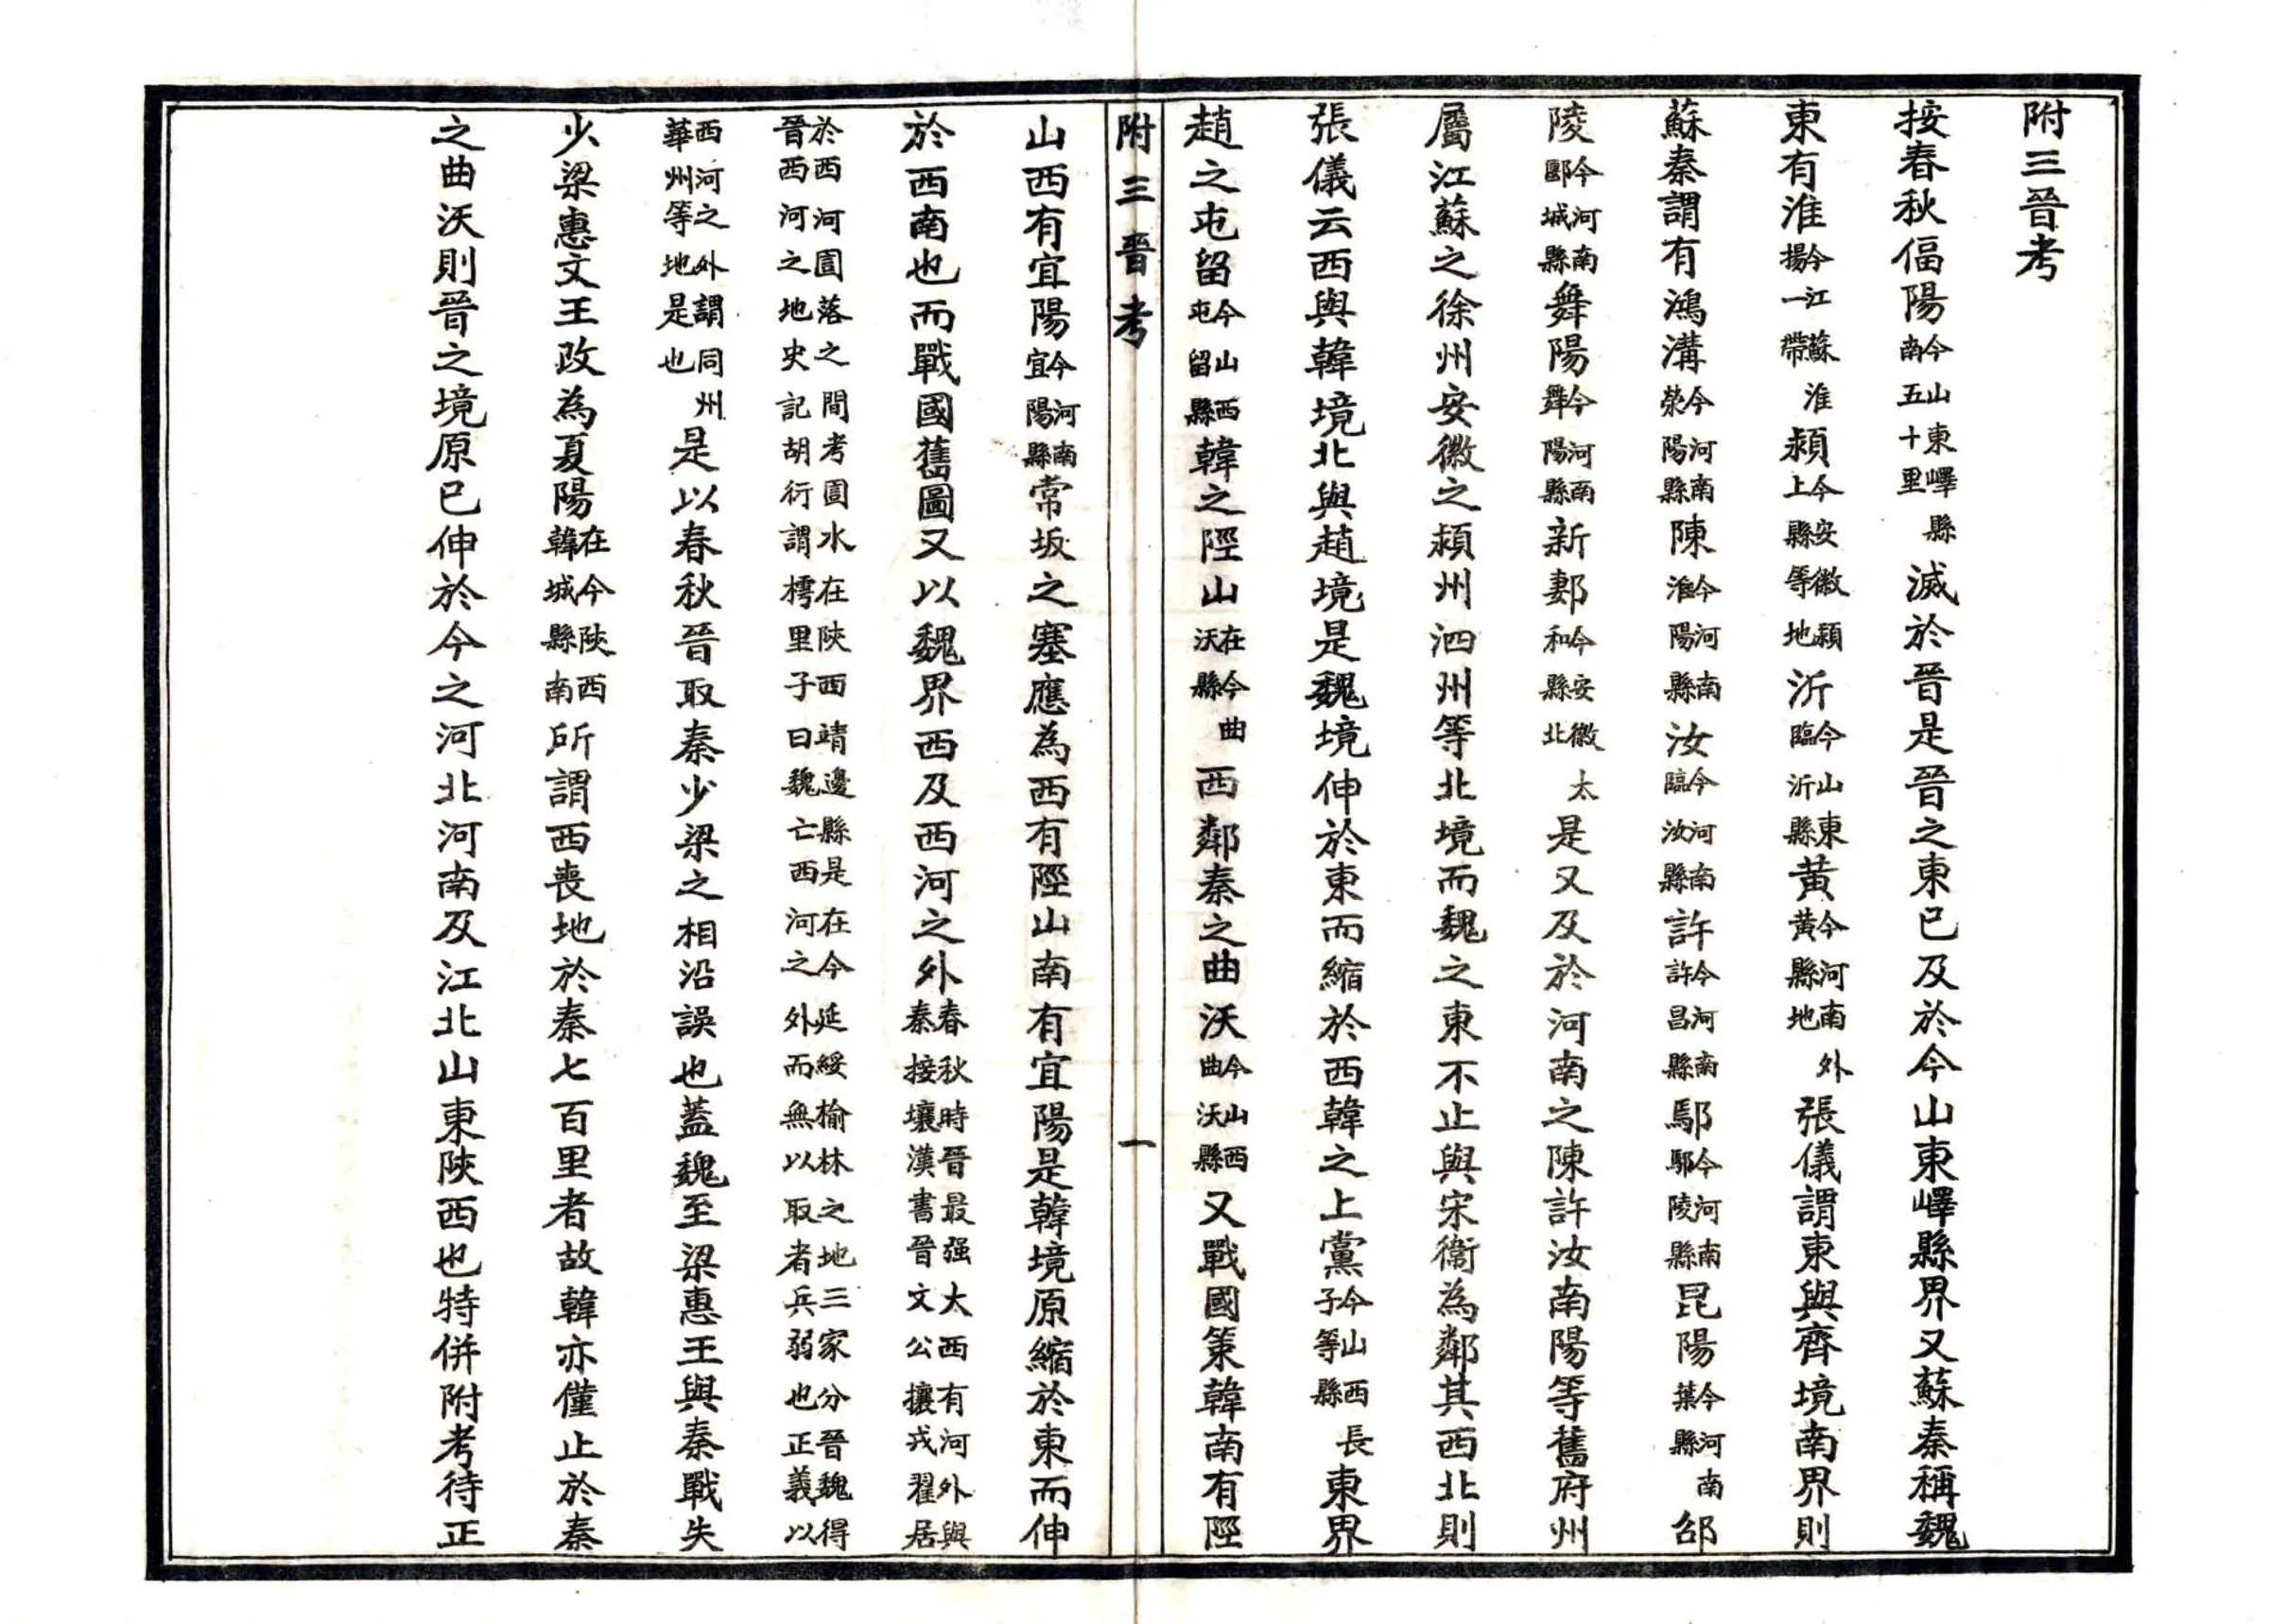 附三晉考
按春秋偪陽今山東嶧縣南五十里滅於晉是晉之東已及於今山東嶧縣界又蘇秦稱魏
東有淮今江蘇淮揚一帶潁今安徽潁上縣等地沂今山東臨沂縣黃今河南外黃縣地張儀謂東與齊境南界則
蘇秦謂有鴻溝今河南滎陽縣陳今河南淮陽縣汝今河南臨汝縣許今河南許昌縣鄢今河南鄢陵縣昆陽今河南葉縣邵
陵今河南郾城縣舞陽今河南舞陽縣新郪今安徽太和縣北是又及於河南之陳許汝南陽等舊府州
屬江蘇之徐州安徽之潁州泗州等北境而魏之東不止與宋衞為鄰其西北則
張儀云西與韓境北與趙境是魏境伸於東而縮於西韓之上黨今山西長子等縣東界
趙之屯留今山西屯留縣韓之陘山在今曲沃縣西鄰秦之曲沃今山西曲沃縣又戰國策韓南有陘
附三晉考 一
山西有宜陽今河南宜陽縣常坂之塞應為西有陘山南有宜陽是韓境原縮於東而伸
於西南也而戰國舊圖又以魏界西及西河之外春秋時晉最强太西有河外與秦接壤漢書晉文公攘戎翟居
於西河圁落之間考圁水在陝西靖邊縣是在今延綏榆林之地三家分晉魏得晉西河之地史記胡衍謂樗里子曰魏亡西河之外而無以取者兵弱也正義以
西河之外謂同州華州等地是也是以春秋晉取秦少梁之相沿誤也蓋魏至梁惠王與秦戰失
少梁惠文王改為夏陽在今陝西韓城縣南所謂西喪地於秦七百里者故韓亦僅止於秦
之曲沃則晉之境原已伸於今之河北河南及江北山東陝西也特併附考待正